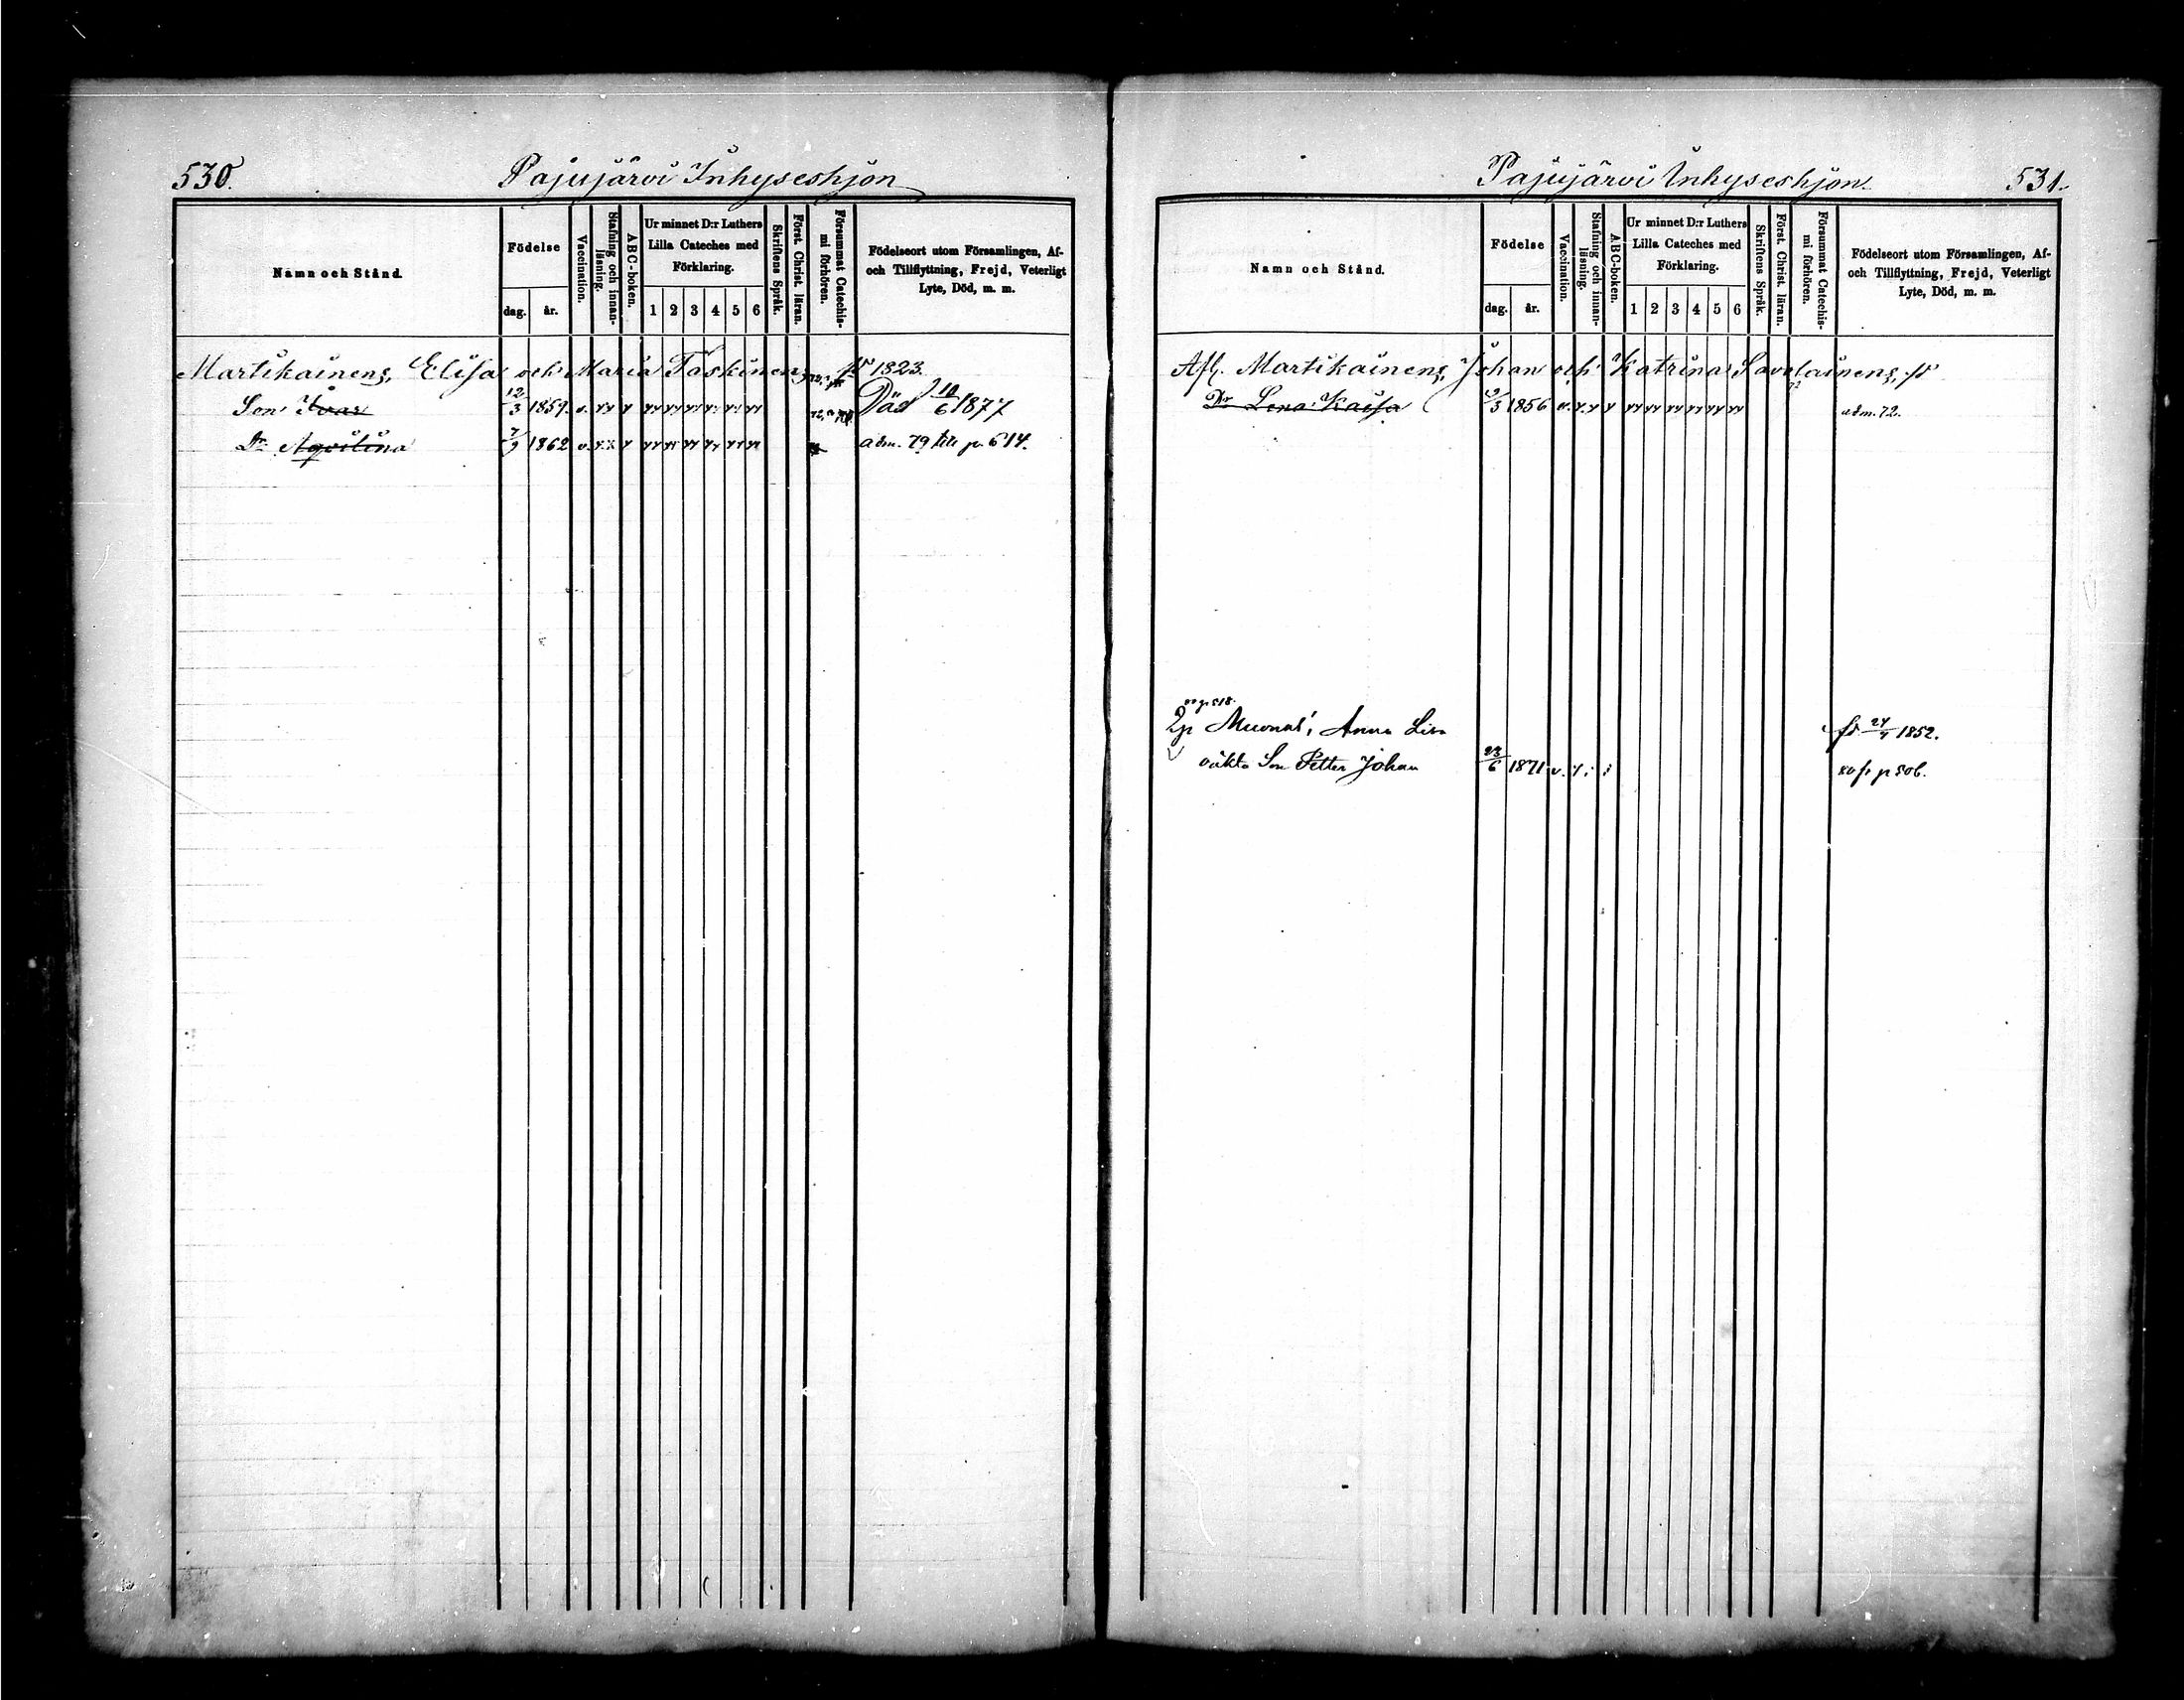 530.
Pajujärvi Inhyseshjon
Namn och Stånd.
Födelse
dag.
år.
Vaccination.
Stafning och innanläsning.
ABC-boken.
Ur minnet D:r Luthers
Lilla Cateches med
Förklaring.
1 2 3 4 5 6
Skriftens Språk.
Först. Christ. läran.
Försummat Catechismi förhören.
Födelseort utom Församlingen, Af-
och Tillflyttning, Frejd, Veterligt
Lyte, Död, m. m.
Martikainens, Elisa och Maria Taskinens, 1823.
Son Ivar 12/3 1859. v. Död 10/6 1877
Dr Aqvilina 7/9 1862 v. adm. 79 till p. 614.
Pajujärvi Inhyseshjon.
531.
Namn och Stånd.
Födelse
dag.
år.
Vaccination.
Stafning och innanläsning.
ABC-boken.
Ur minnet D:r Luthers
Lilla Cateches med
Förklaring.
1 2 3 4 5 6
Skriftens Språk.
Först. Christ. läran.
Försummat Catechismi förhören.
Födelseort utom Församlingen, Af-
och Tillflyttning, Frejd, Veterligt
Lyte, Död, m. m.
Afl. Martikainens, Johan och Katrina Savolainens,
Dr Lena Kaisa /3 1856 v. adm. 72.
p 518.
Anna Lisa 1852.
oäkta Son Petter Johan 23/6 1871 v. p 506.